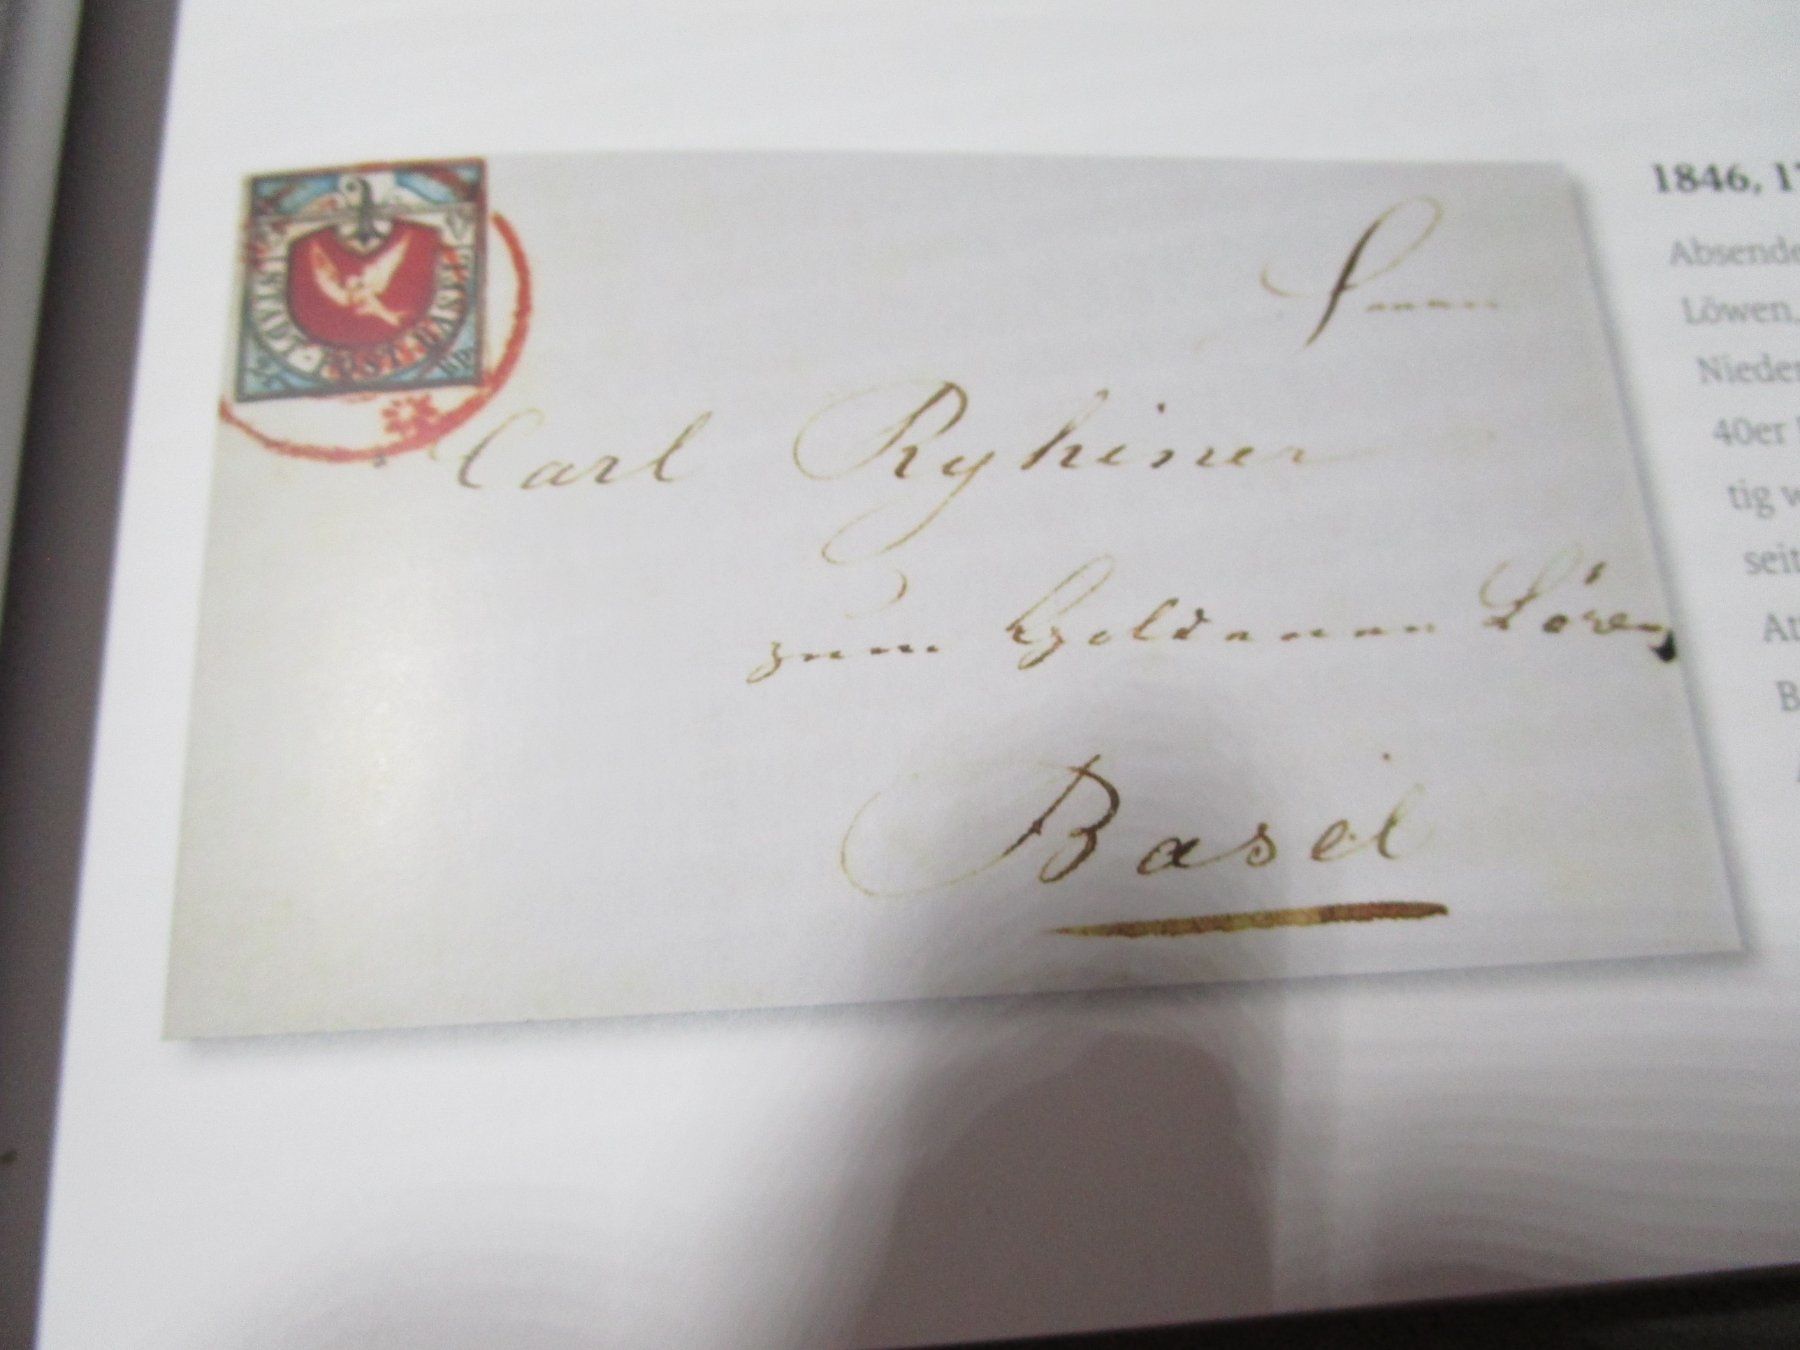 STADT POST BASEL
Herrn
Carl Ryhiner
zum Goldenen Löwen
Basel
1846, 17
Absende
Löwen,
Nieder
40er
tig w
seit
At
B